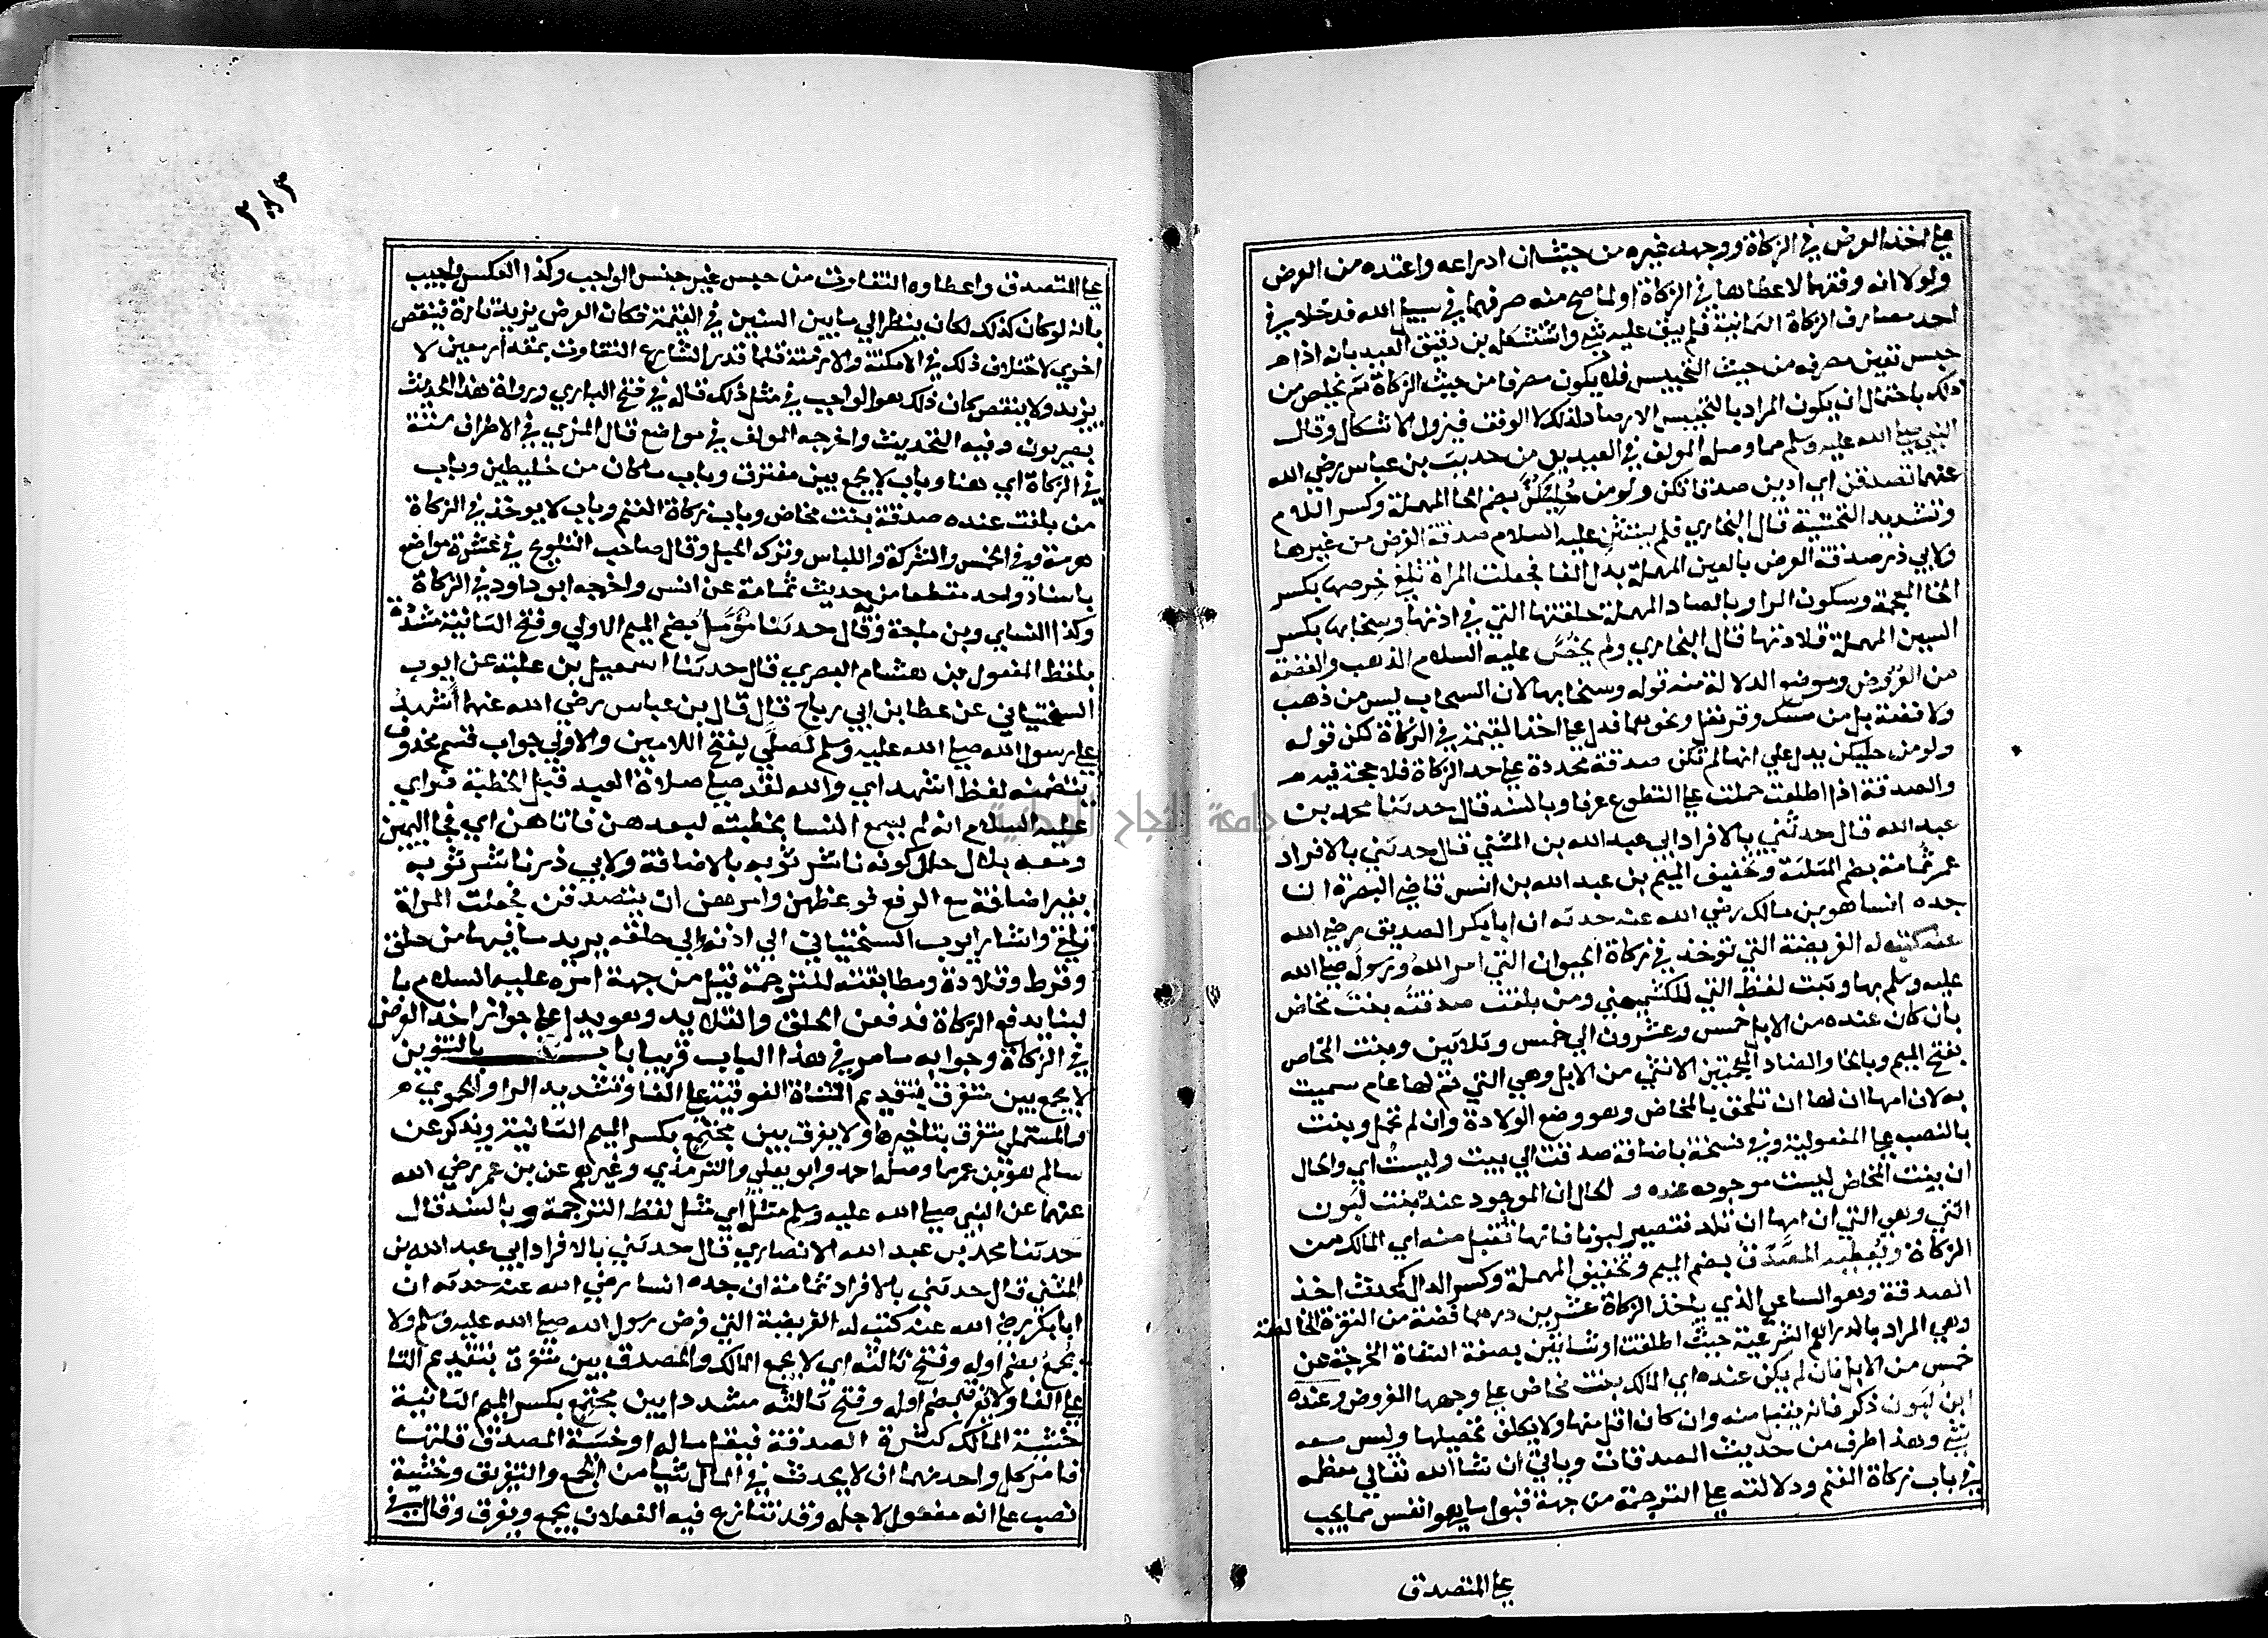 على اخذ العرض في الزكاة ووجهه غيره من حيث ان ادراعه واعتده من العرض
ولولا انه وقفهما لاعطاهما في الزكاة او لما صح منه صرفهما في سبيل الله فدخلا في
احد مصارف الزكاة الثمانية فلم يبق عليه شي واستشكله بن دقيق العيد بانه اذا
حبس تعين مصرفه من حيث التحبيس فلا يكون مصرفا من حيث الزكاة ثم تخلص من
ذلك باحتمال ان يكون المراد بالتحبيس الارصاد لذلك لا الوقف فيزول الاشكال وقال
النبي صلى الله عليه وسلم مما وصله المولف في العيدين من حديث بن عباس رضي الله
عنهما تصدقن اي ادين صدقاتكن ولو من حُلِيِّكُنَّ بضم الحا المهملة وكسر اللام
وتشديد التحتية قال البخاري فلم يستثنِ عليه السلام صدقة الفرض من غيرها
ولابي ذر صدقة العرض بالعين المهملة بدل الفا فجعلت المراة تلقي خرصها بكسر
الخا المعجمة وسكون الرا وبالصاد المهملة حلقتها التي في اذنها وسِخابها بكسر
السين المهملة قلادتها قال البخاري ولم يخُصَّ عليه السلام الذهب والفضة
من العُرُوض وموضع الدلالة منه قوله وسخابها لان السخاب ليس من ذهب
ولا فضة بل من مسك وقرنفل ونحوهما فدل على اخذ القيمة في الزكاة لكن قوله
ولو من حليكن يدل على انها لم تكن صدقة محددة على حد الزكاة فلا حجة فيه
والصدقة اذا اطلقت حملت على التطوع عرفا وبالسند قال حدثنا محمد بن
عبد الله قال حدثني بالافراد ابي عبد الله بن المثني قال حدثني بالافراد
عمر ثُمامة بضم المثلثة وتخفيف الميم بن عبد الله بن انس قاضي البصرة ان
جده انسا هو بن مالك رضي الله عنه حدثه ان ابا بكر الصديق رضي الله
عنه كتب له الفريضة التي توخذ في زكاة الحيوان التي امر اللهُ ورسولُه صلى الله
عليه وسلم بها وثبت لفظ التي للكشميهني ومن بلغت صدقتُه بنتَ مخاض
بان كان عنده من الابل خمس وعشرون الى خمس وثلاثين وبنت المخاض
بفتح الميم وبالخا والضاد المعجمتين الانثى من الابل وهي التي تم لها عام سميت
به لان امها ان لها ان تلحق بالمخاض وهو وضع الولادة وان لم تحمل وبنت
بالنصب على المفعولية وفي نسخة باضافة صدقت الي بنت وليستْ اي والحال
ان بنت المخاض ليست موجوده عنده و الحال ان الموجود عندهُ بنت لبون
انثي وهي التي ان امها ان تلد فتصير لبونا فانها تقبل منه اي المالك من
الزكاة ويُعطيه المصَدِّق بضم الميم وتخفيف المهملة وكسر الدال كمحدث اخذ
الصدقة وهو الساعي الذي ياخذ الزكاة عشرين درهما فضة من النقرة الخالصة
وهي المراد بالدراهم الشرعية حيث اطلقت او شاتين بصفة الشاة المخرجة عن
خمس من الابل فان لم يكن عنده اي المالك بنت مخاض على وجهها المفروض وعنده
ابنُ لَبُون ذكر فانه يقبل منه وان كان اقل منها ولا يكلف تحصيلها وليس معه
شي وهذا طرف من حديث الصدقات وياتي ان شا الله تعالي معظمه
في باب زكاة الغنم ودلالته على الترجمة من جهة قبول ما هو انفس مما يجب
على المتصدق
٣٨٣
على المتصدق واعطاوه التفاوت من جنس غير جنس الواجب وكذا العكس واجيب
بانه لو كان كذلك لكان ينظر الي ما بين السنين في القيمة فكان العرض يزيد تارة وينقص
اخري لاختلاف ذلك في الامكنة والازمنة فلما قدر الشارع التفاوت بمقدار معين لا
يزيد ولا ينقص كان ذلك هو الواجب في مثل ذلك قاله في فتح الباري ورواة هذا الحديث
بصريون وفيه التحديث واخرجه المولف في مواضع قال المزي في الاطراف ستة
في الزكاة اي هنا وباب لا يجمع بين مفترق وباب ما كان من خليطين وباب
من بلغت عنده صدقة بنت مخاض وباب زكاة الغنم وباب لا يوخذ في الزكاة
هرمة وفي الخمس والشركة واللباس وترك الحيل وقال صاحب التلويح في عشرة مواضع
باسناد واحد مقطعا من حديث ثمامة عن انس واخرجه ابو داود في الزكاة
وكذا النساي وبن ماجة وَقال حدثنا مُؤَمَّلُ بضم الميم الاولي وفتح الثانية مشددة
بلفظ المفعول بن هشام البصري قال حدثنا اسمعيل بن علية عن ايوب
السختياني عن عطا بن ابي رباح قال قال بن عباس رضي الله عنهما أشهدُ
على رسول الله صلى الله عليه وسلم لَصَلَّي بفتح اللامين والاولي جواب قسم محذوف
يتضمنه لفظ اشهد اي والله لقد صلى صلاة العيد قبل الخطبة فراي
عليه السلام انه لم يسمع النسا بخطبته لبعدهن فاتاهن اي فجا اليهن
ومعه بلال حال كونه ناشر ثوبه بالاضافة ولابي ذر ناشر ثوبه
بغير اضافة مع الرفع فوعظهن وامرهن ان يتصدقن فجعلت المراة
تلقي واشار ايوب السختياني الي اذنه والي حلقه يريد ما فيها من حلق
وقرط وقلادة ومطابقته للترجمة قيل من جهة امره عليه السلام
لنسا بدفع الزكاة فدفعن الحلق والقلايد وهو يدل على جواز اخذ العرض
في الزكاة وجوابه ما مر في هذا الباب قريبا باب بالتنوين
لا يجمع بين متفرق بتقديم المثناة الفوقية على الفا وتشديد الرا والحموي
والمستملي مفترق بتاخيرها ولا يفرق بين مجتمِع بكسر الميم الثانية ويذكر عن
سالم هو بن عمر مما وصله احمد وابو يعلي والترمذي وغيرهم عن بن عمر رضي الله
عنهما عن النبي صلى الله عليه وسلم مثله اي مثل لفظ الترجمة وبالسند قال
حدثنا محمد بن عبد الله الانصاري قال حدثني بالافراد ابي عبد الله بن
المثني قال حدثني بالافراد ثمامة ان جده انسا رضي الله عنه حدثه ان
ابا بكر رضي الله عنه كتب له الفريضة التي فرض رسول الله صلى الله عليه وسلم ولا
يُجمعُ بضم اوله وفتح ثالثه اي لا يجمع المالك والمصدق بين متفرق بتقديم التا
على الفا ولا يُفرق بضم اوله وفتح ثالثه مشددا بين مجتمِع بكسر الميم الثانية
خشية المالك كثرة الصدقة فيقل ماله او خشية المصدق قلتها
فامر كل واحد منهما ان لا يحدث في المال شيا من الجمع والتفريق وخشية
نصب على انه مفعول لاجله وقد تنازع فيه الفعلان يجمع ويفرق وقال في
جامعة النجاح الوطنية